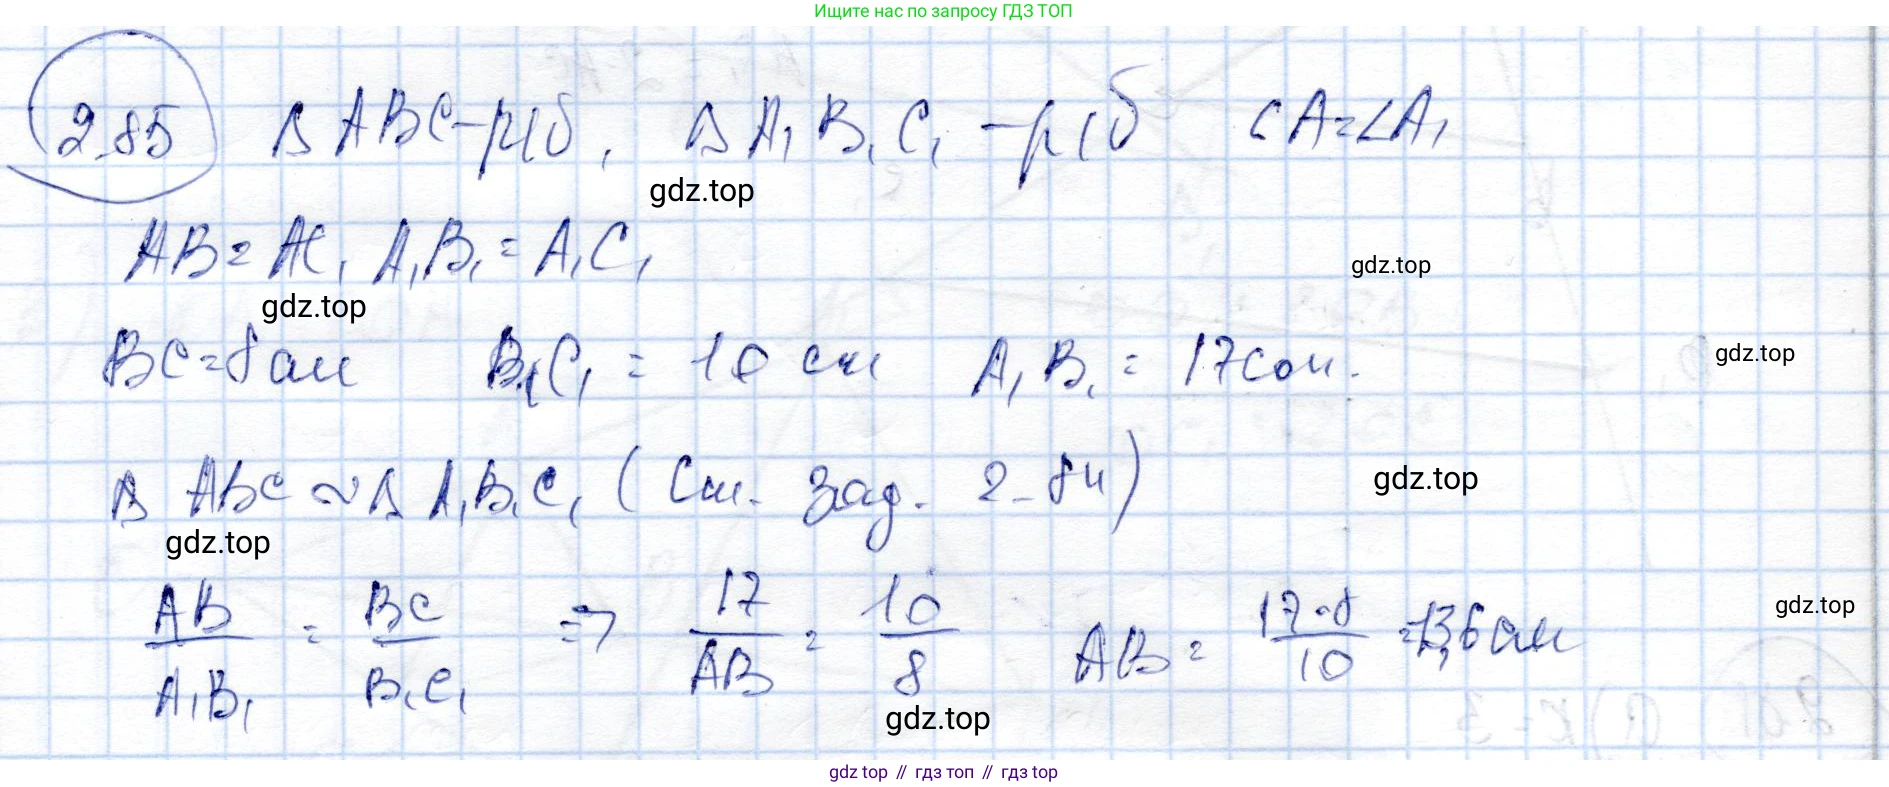 Ищите нас по запросу ГДЗ ТОП
2.85 Δ ABC – р/б, Δ A₁B₁C₁ – р/б ∠A=∠A₁
gdz.top
AB = AC, A₁B₁ = A₁C₁
gdz.top
gdz.top
BC = 8 см B₁C₁ = 10 см A₁B₁ = 17 см.
gdz.top
Δ ABC ~ Δ A₁B₁C₁ (См. зад. 2-84)
gdz.top
gdz.top
AB/A₁B₁ = BC/B₁C₁ => 17/AB = 10/8 AB = 17·8/10 = 13,6 см
gdz.top
gdz.top
gdz top // гдз топ // гдз top